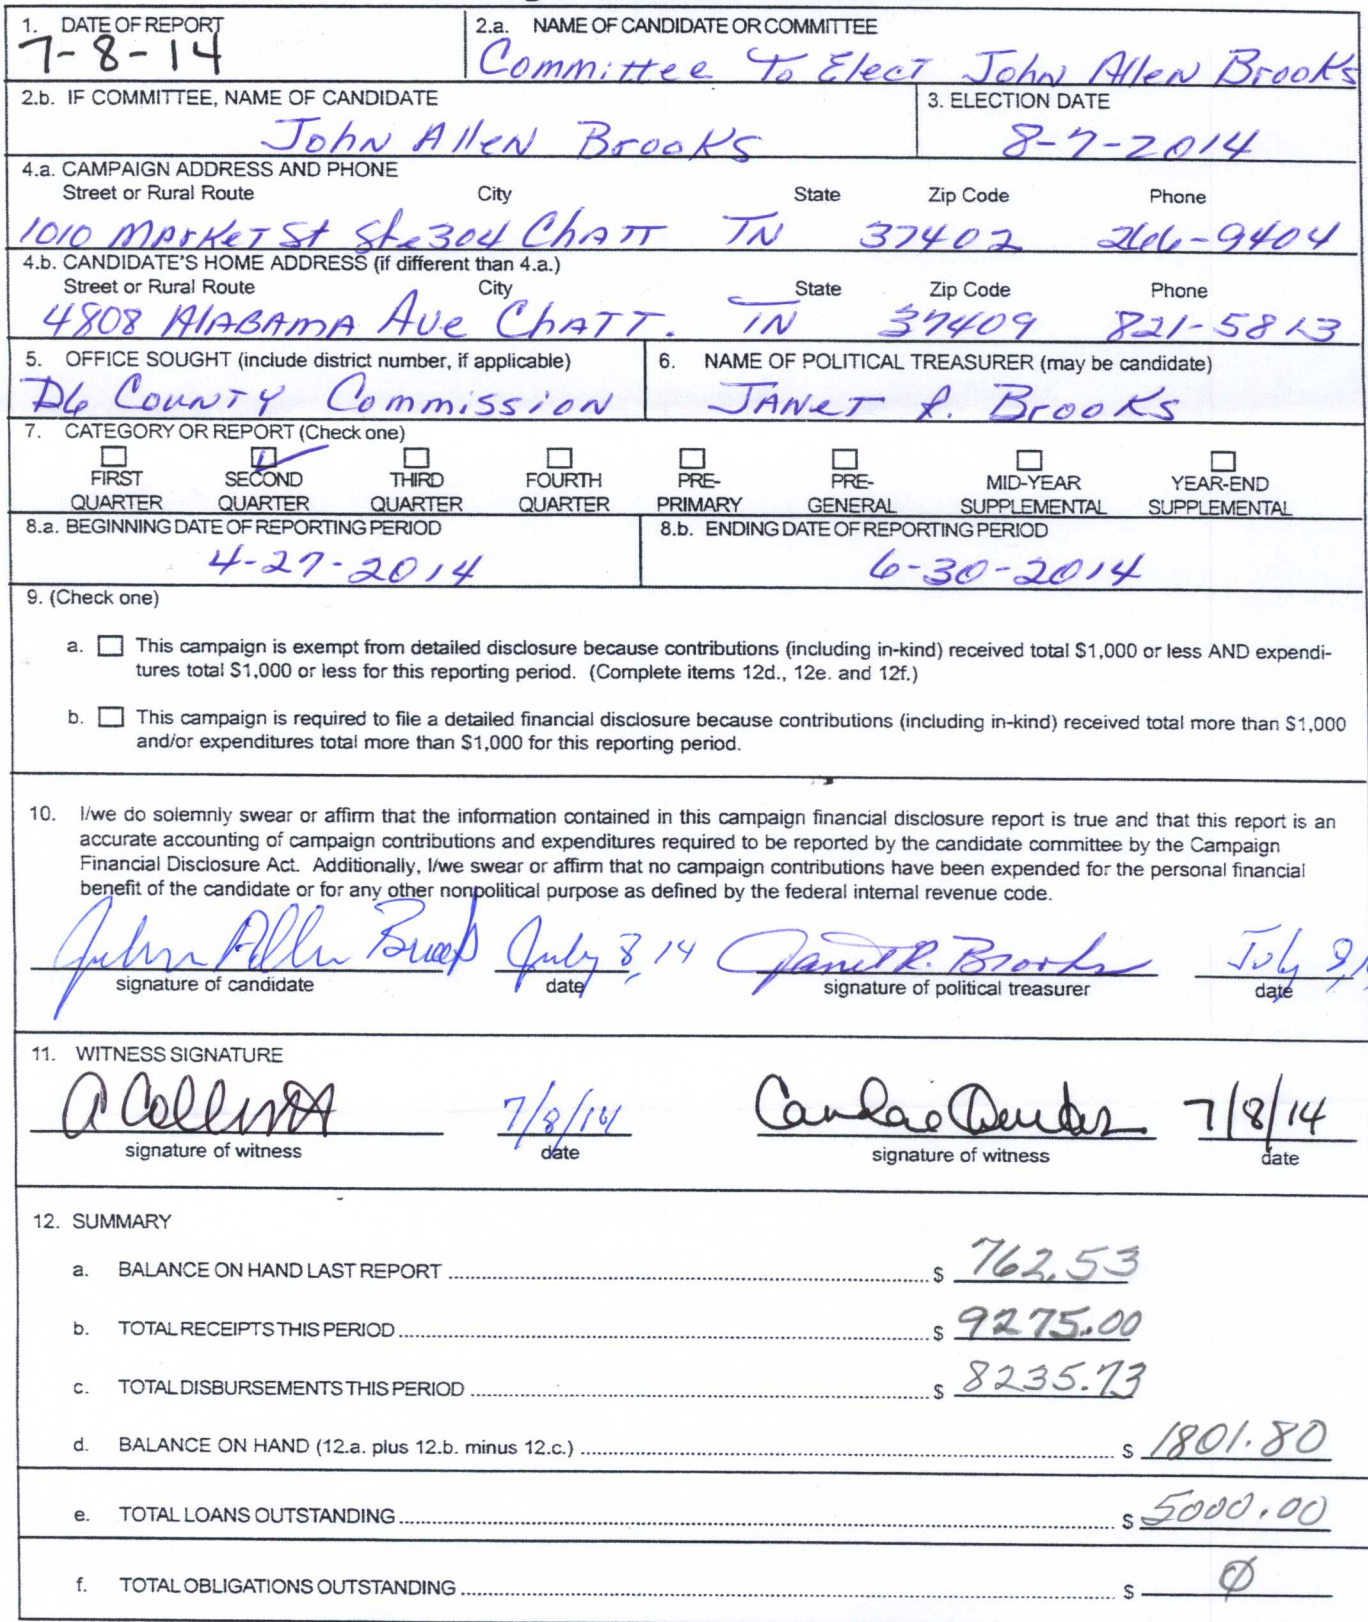 1. DATE OF REPORT
7-8-14
2.a. NAME OF CANDIDATE OR COMMITTEE
Committee To Elect John Allen Brooks
2.b. IF COMMITTEE, NAME OF CANDIDATE
John Allen Brooks
3. ELECTION DATE
8-7-2014
4.a. CAMPAIGN ADDRESS AND PHONE
Street or Rural Route City State Zip Code Phone
1010 Market St Ste 304 Chatt TN 37402 266-9404
4.b. CANDIDATE'S HOME ADDRESS (if different than 4.a.)
Street or Rural Route City State Zip Code Phone
4808 Alabama Ave Chatt. TN 37409 821-5813
5. OFFICE SOUGHT (include district number, if applicable)
D6 County Commission
6. NAME OF POLITICAL TREASURER (may be candidate)
Janet R. Brooks
7. CATEGORY OR REPORT (Check one)
FIRST QUARTER
SECOND QUARTER
THIRD QUARTER
FOURTH QUARTER
PRE-PRIMARY
PRE-GENERAL
MID-YEAR SUPPLEMENTAL
YEAR-END SUPPLEMENTAL
8.a. BEGINNING DATE OF REPORTING PERIOD
4-27-2014
8.b. ENDING DATE OF REPORTING PERIOD
6-30-2014
9. (Check one)
a. This campaign is exempt from detailed disclosure because contributions (including in-kind) received total $1,000 or less AND expendi-
tures total $1,000 or less for this reporting period. (Complete items 12d., 12e. and 12f.)
b. This campaign is required to file a detailed financial disclosure because contributions (including in-kind) received total more than $1,000
and/or expenditures total more than $1,000 for this reporting period.
10. I/we do solemnly swear or affirm that the information contained in this campaign financial disclosure report is true and that this report is an
accurate accounting of campaign contributions and expenditures required to be reported by the candidate committee by the Campaign
Financial Disclosure Act. Additionally, I/we swear or affirm that no campaign contributions have been expended for the personal financial
benefit of the candidate or for any other nonpolitical purpose as defined by the federal internal revenue code.
John Allen Brooks July 8, 14 Janet R. Brooks July 8,
signature of candidate date signature of political treasurer date
11. WITNESS SIGNATURE
7/8/14 7/8/14
signature of witness date signature of witness date
12. SUMMARY
a. BALANCE ON HAND LAST REPORT $ 762.53
b. TOTAL RECEIPTS THIS PERIOD $ 9275.00
c. TOTAL DISBURSEMENTS THIS PERIOD $ 8235.73
d. BALANCE ON HAND (12.a. plus 12.b. minus 12.c.) $ 1801.80
e. TOTAL LOANS OUTSTANDING $ 5000.00
f. TOTAL OBLIGATIONS OUTSTANDING $ Ø